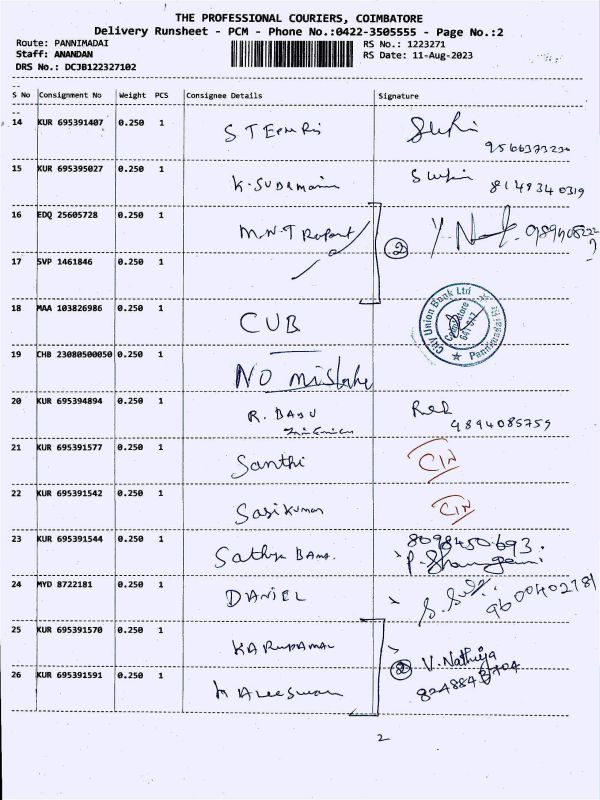 THE PROFESSIONAL COURIERS, COIMBATORE
Delivery Runsheet - PCM - Phone No.:0422-3505555 - Page No.:2
Route: PANNIMADAI RS No.: 1223271
Staff: ANANDAN RS Date: 11-Aug-2023
DRS No.: DCJB122327102
S No Consignment No Weight PCS Consignee Details Signature
14 KUR 695391407 0.250 1
15 KUR 695395027 0.250 1 8148340319
16 EDQ 25605728 0.250 1 2
17 SVP 1461846 0.250 1
18 MAA 103826986 0.250 1 CUB City Union Bank Ltd
19 CHB 23080500050 0.250 1 NO mistake
20 KUR 695394894 0.250 1 R. BABU
9894085759
21 KUR 695391577 0.250 1 Santhi
22 KUR 695391542 0.250 1 Sasikumar
23 KUR 695391544 0.250 1 Sathya 8098450693
24 MYD 8722181 0.250 1 DANIEL 9600402781
25 KUR 695391570 0.250 1 2 V. Nathiya
26 KUR 695391591 0.250 1
2